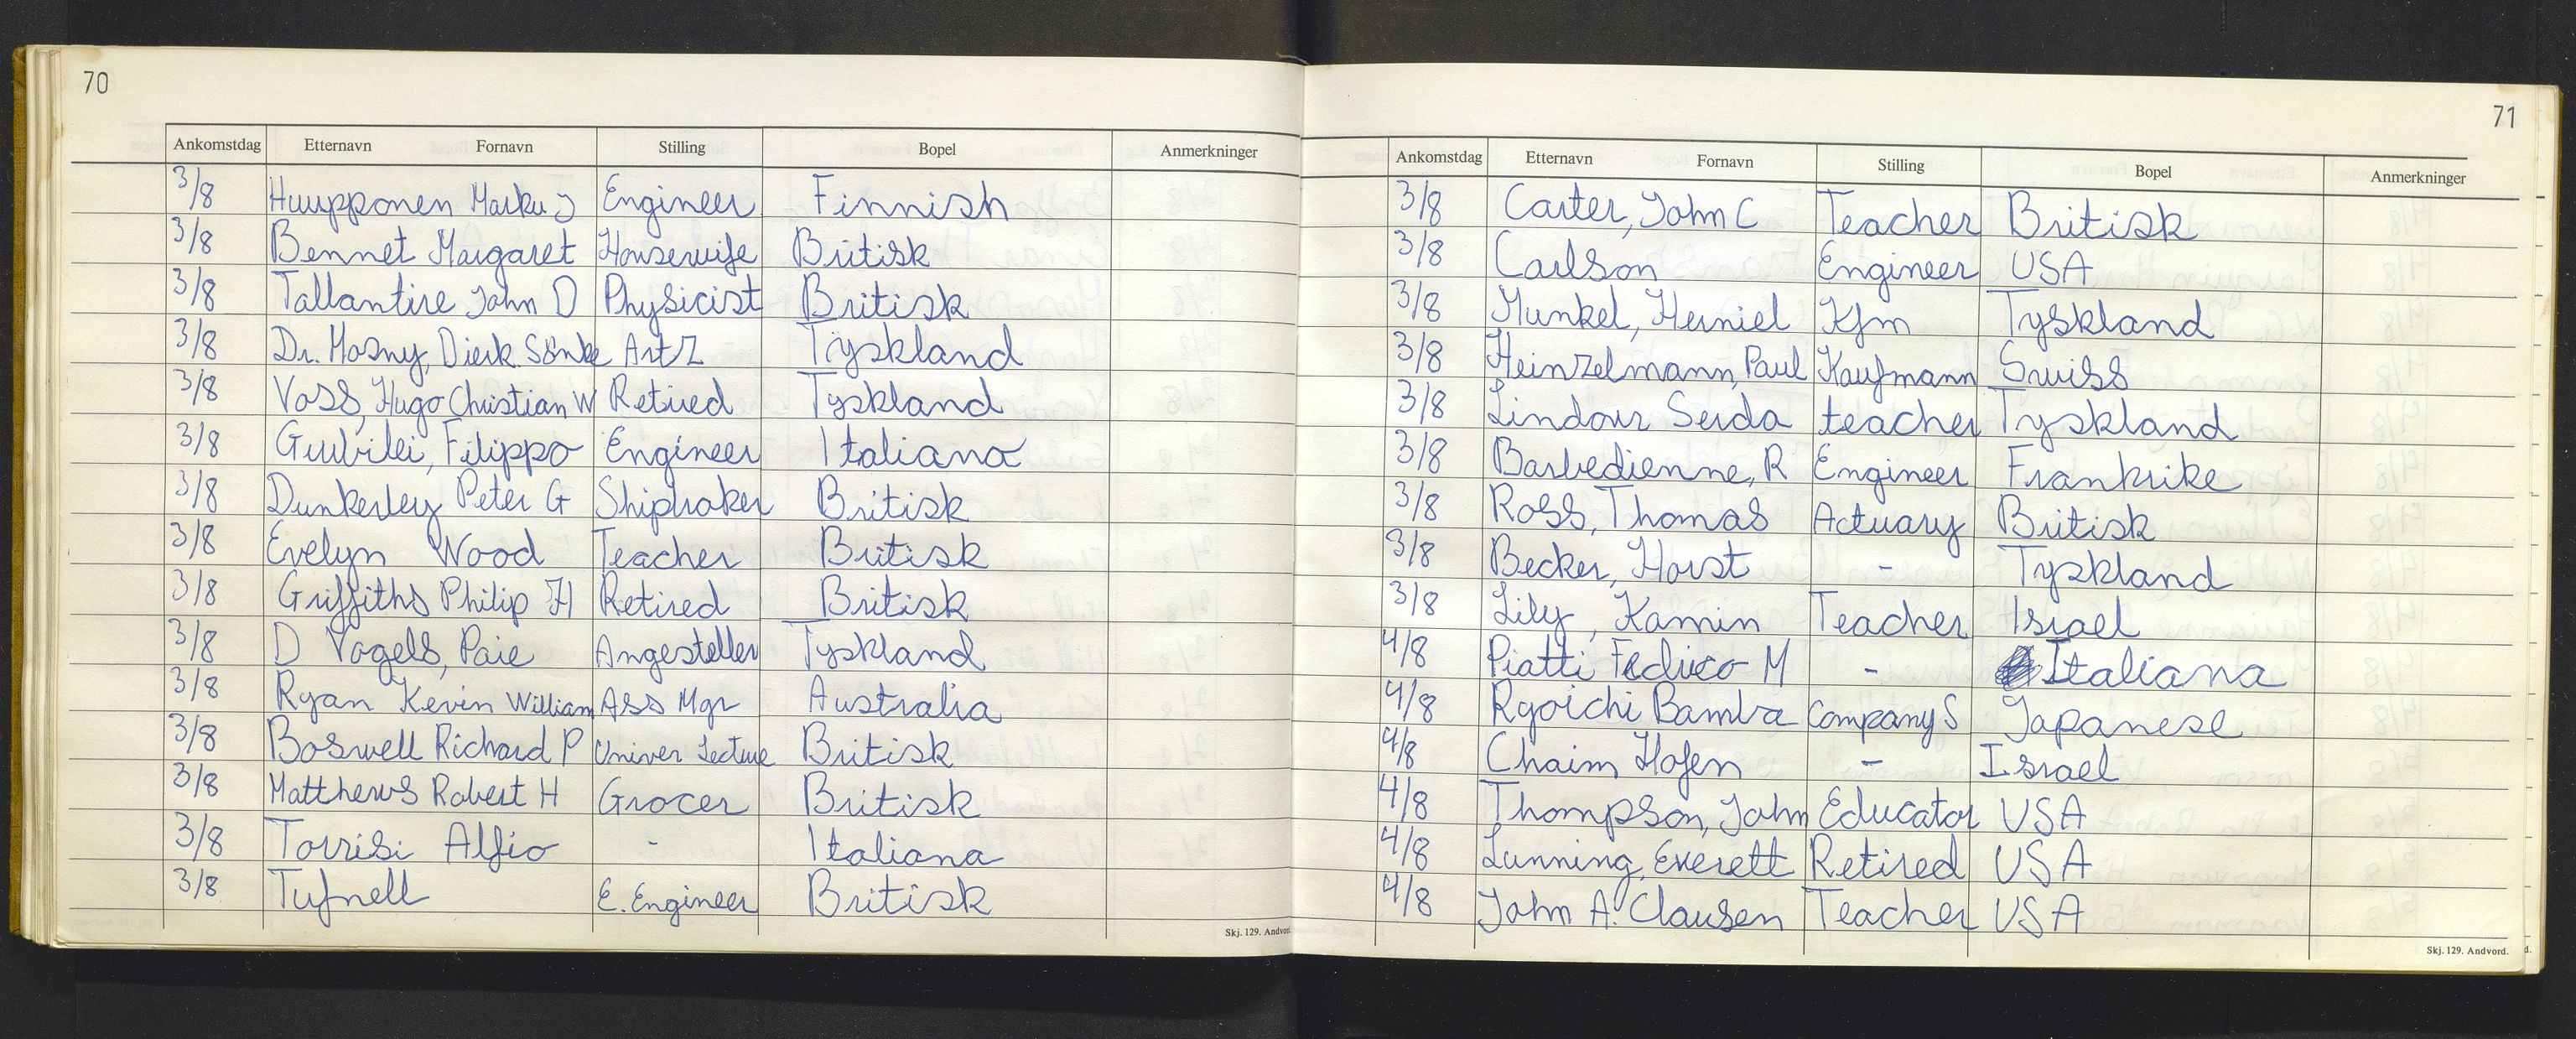 70
Ankomstdag Etternavn Fornavn Stilling Bopel Anmerkninger
3/8 Huupponen Marku J Engineer Finnish
3/8 Bennet Margaret Housewife Britisk
3/8 Tallantire John D Physicist Britisk
3/8 Dr. Mosny, Dierk Sönke Artz Tyskland
3/8 Voss, Hugo Christian W Retired Tyskland
3/8 Gubilei, Filippo Engineer Italiana
3/8 Dunkerley Peter G Shiproker Britisk
3/8 Evelyn Wood Teacher Britisk
3/8 Griffiths Philip H Retired Britisk
3/8 D Vogels, Paie Angesteller Tyskland
3/8 Ryan Kevin William Ass Mgr Australia
3/8 Boswell Richard P Univer Lecture Britisk
3/8 Matthews Robert H Grocer Britisk
3/8 Torrisi Alfio - Italiana
3/8 Tufnell E. Engineer Britisk
Skj. 129. Andvord
71
Ankomstdag Etternavn Fornavn Stilling Bopel Anmerkninger
3/8 Carter, John C Teacher Britisk
3/8 Carlson Engineer USA
3/8 Munkel, Herniel Kfm Tyskland
3/8 Heinzelmann, Paul Kaufmann Swiss
3/8 Lindour Serda teacher Tyskland
3/8 Barbedienne, R Engineer Frankrike
3/8 Ross, Thomas Actuary Britisk
3/8 Becker, Horst - Tyskland
3/8 Lily, Kamin Teacher Israel
4/8 Piatti M - Italiana
4/8 Ryoichi Bamba Company S Japanese
4/8 Chaim Hofen - Israel
4/8 Thompson, John Educator USA
4/8 Lunning, Everett Retired USA
4/8 John A. Clausen Teacher USA
Skj. 129. Andvord.